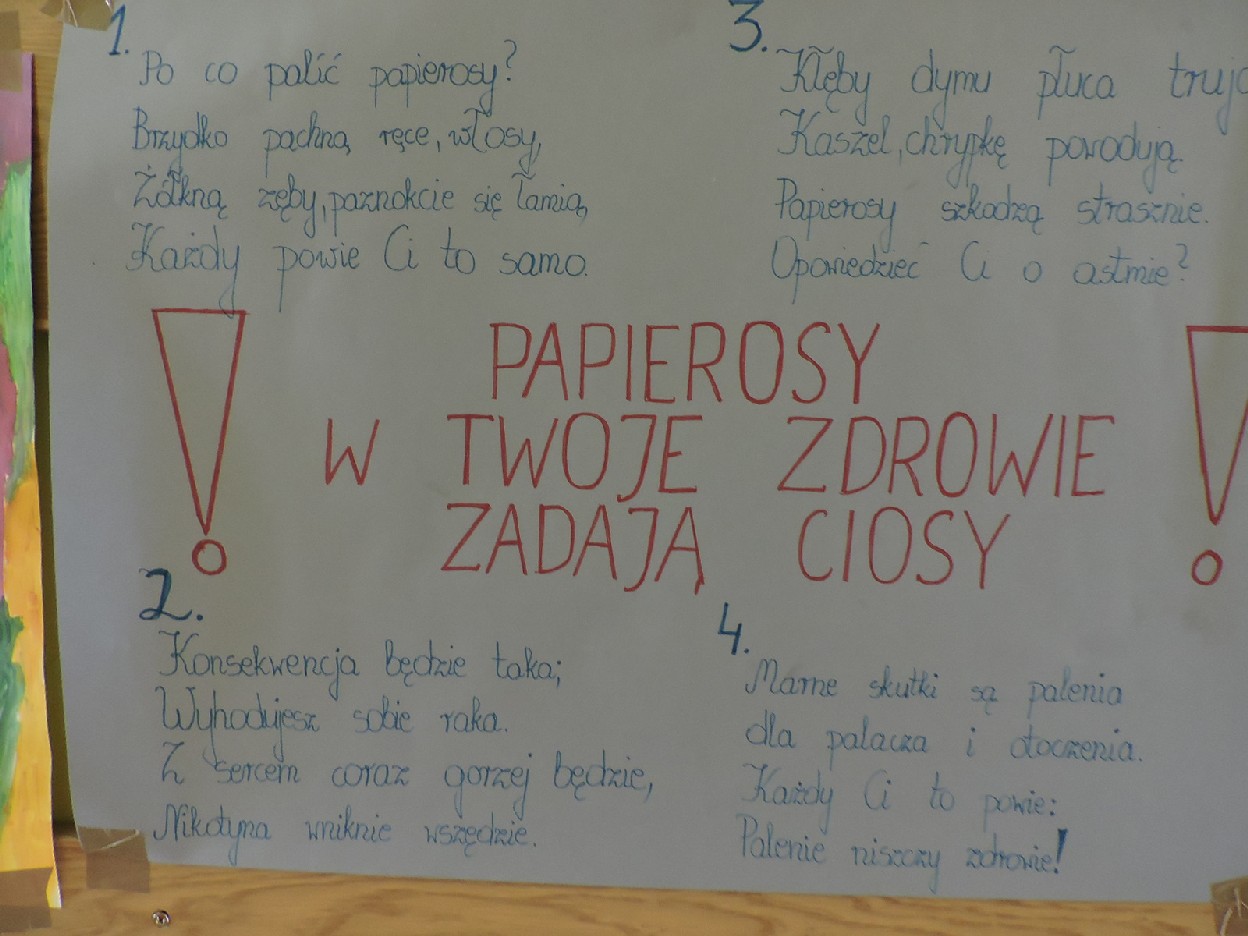 1.
Po co palić papierosy?
Brzydko pachną ręce, włosy,
Żółkną zęby, paznokcie się łamią,
Każdy powie Ci to samo.
3.
Kłęby dymu płuca trują
Kaszel, chrypkę powodują.
Papierosy szkodzą strasznie.
Opowiedzieć Ci o astmie?
! PAPIEROSY !
W TWOJE ZDROWIE
ZADAJĄ CIOSY
2.
Konsekwencja będzie taka;
Wyhodujesz sobie raka.
Z sercem coraz gorzej będzie,
Nikotyna wniknie wszędzie.
4.
Marne skutki są palenia
dla palacza i otoczenia.
Każdy Ci to powie:
Palenie niszczy zdrowie!